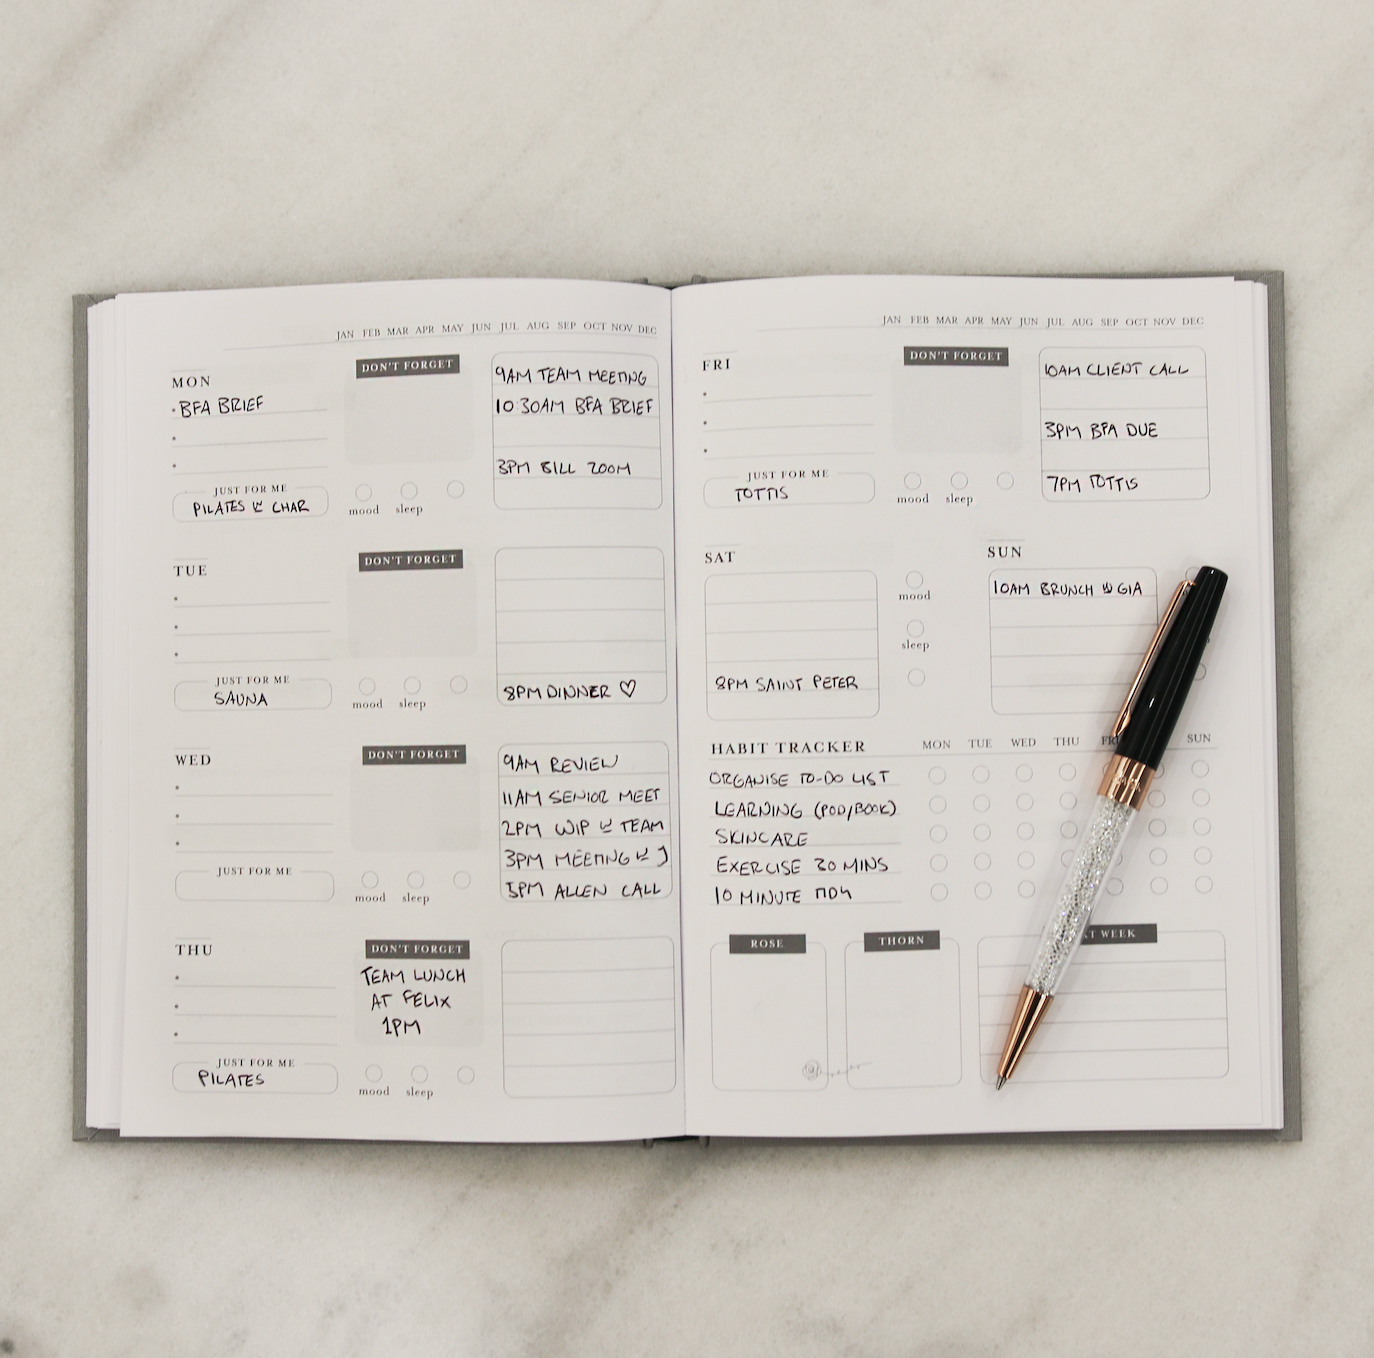 JAN FEB MAR APR MAY JUN JUL AUG SEP OCT NOV DEC
MON
DON'T FORGET
BFA BRIEF
9AM TEAM MEETING
10:30AM BFA BRIEF
3PM BILL ZOOM
JUST FOR ME
PILATES W CHAR
mood sleep
TUE
DON'T FORGET
JUST FOR ME
SAUNA
mood sleep
8PM DINNER ♡
WED
DON'T FORGET
9AM REVIEW
11AM SENIOR MEET
2PM WIP W TEAM
3PM MEETING W J
5PM ALLEN CALL
JUST FOR ME
mood sleep
THU
DON'T FORGET
TEAM LUNCH
AT FELIX
1PM
JUST FOR ME
PILATES
mood sleep
JAN FEB MAR APR MAY JUN JUL AUG SEP OCT NOV DEC
FRI
DON'T FORGET
10AM CLIENT CALL
3PM BFA DUE
7PM TOTTIS
JUST FOR ME
TOTTIS
mood sleep
SAT
8PM SAINT PETER
mood
sleep
SUN
10AM BRUNCH W GIA
HABIT TRACKER MON TUE WED THU FRI SUN
ORGANISE TO-DO LIST
LEARNING (POD/BOOK)
SKINCARE
EXERCISE 30 MINS
10 MINUTE TIDY
ROSE
THORN
WEEK